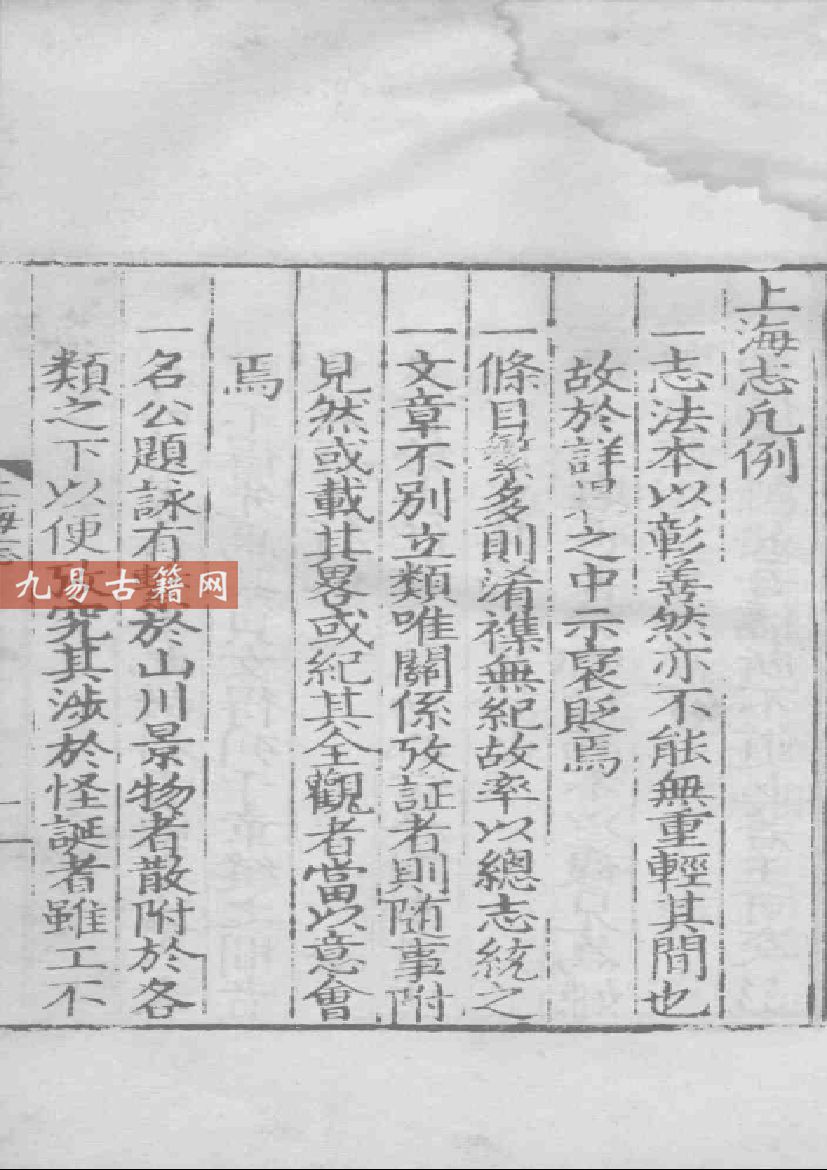 上海志凡例
一志法本以彰善然亦不能無重輕其間也
故於詳之中示襃貶焉
一條目繁多則淆襍無紀故率以總志統之
一文章不別立類唯關係攷証者則随事附
見然或載其畧或紀其全觀者當以意會
焉
一名公題詠有於山川景物者散附於各
類之下以便攷究其涉於怪誕者雖工不
上海志
一
九易古籍网